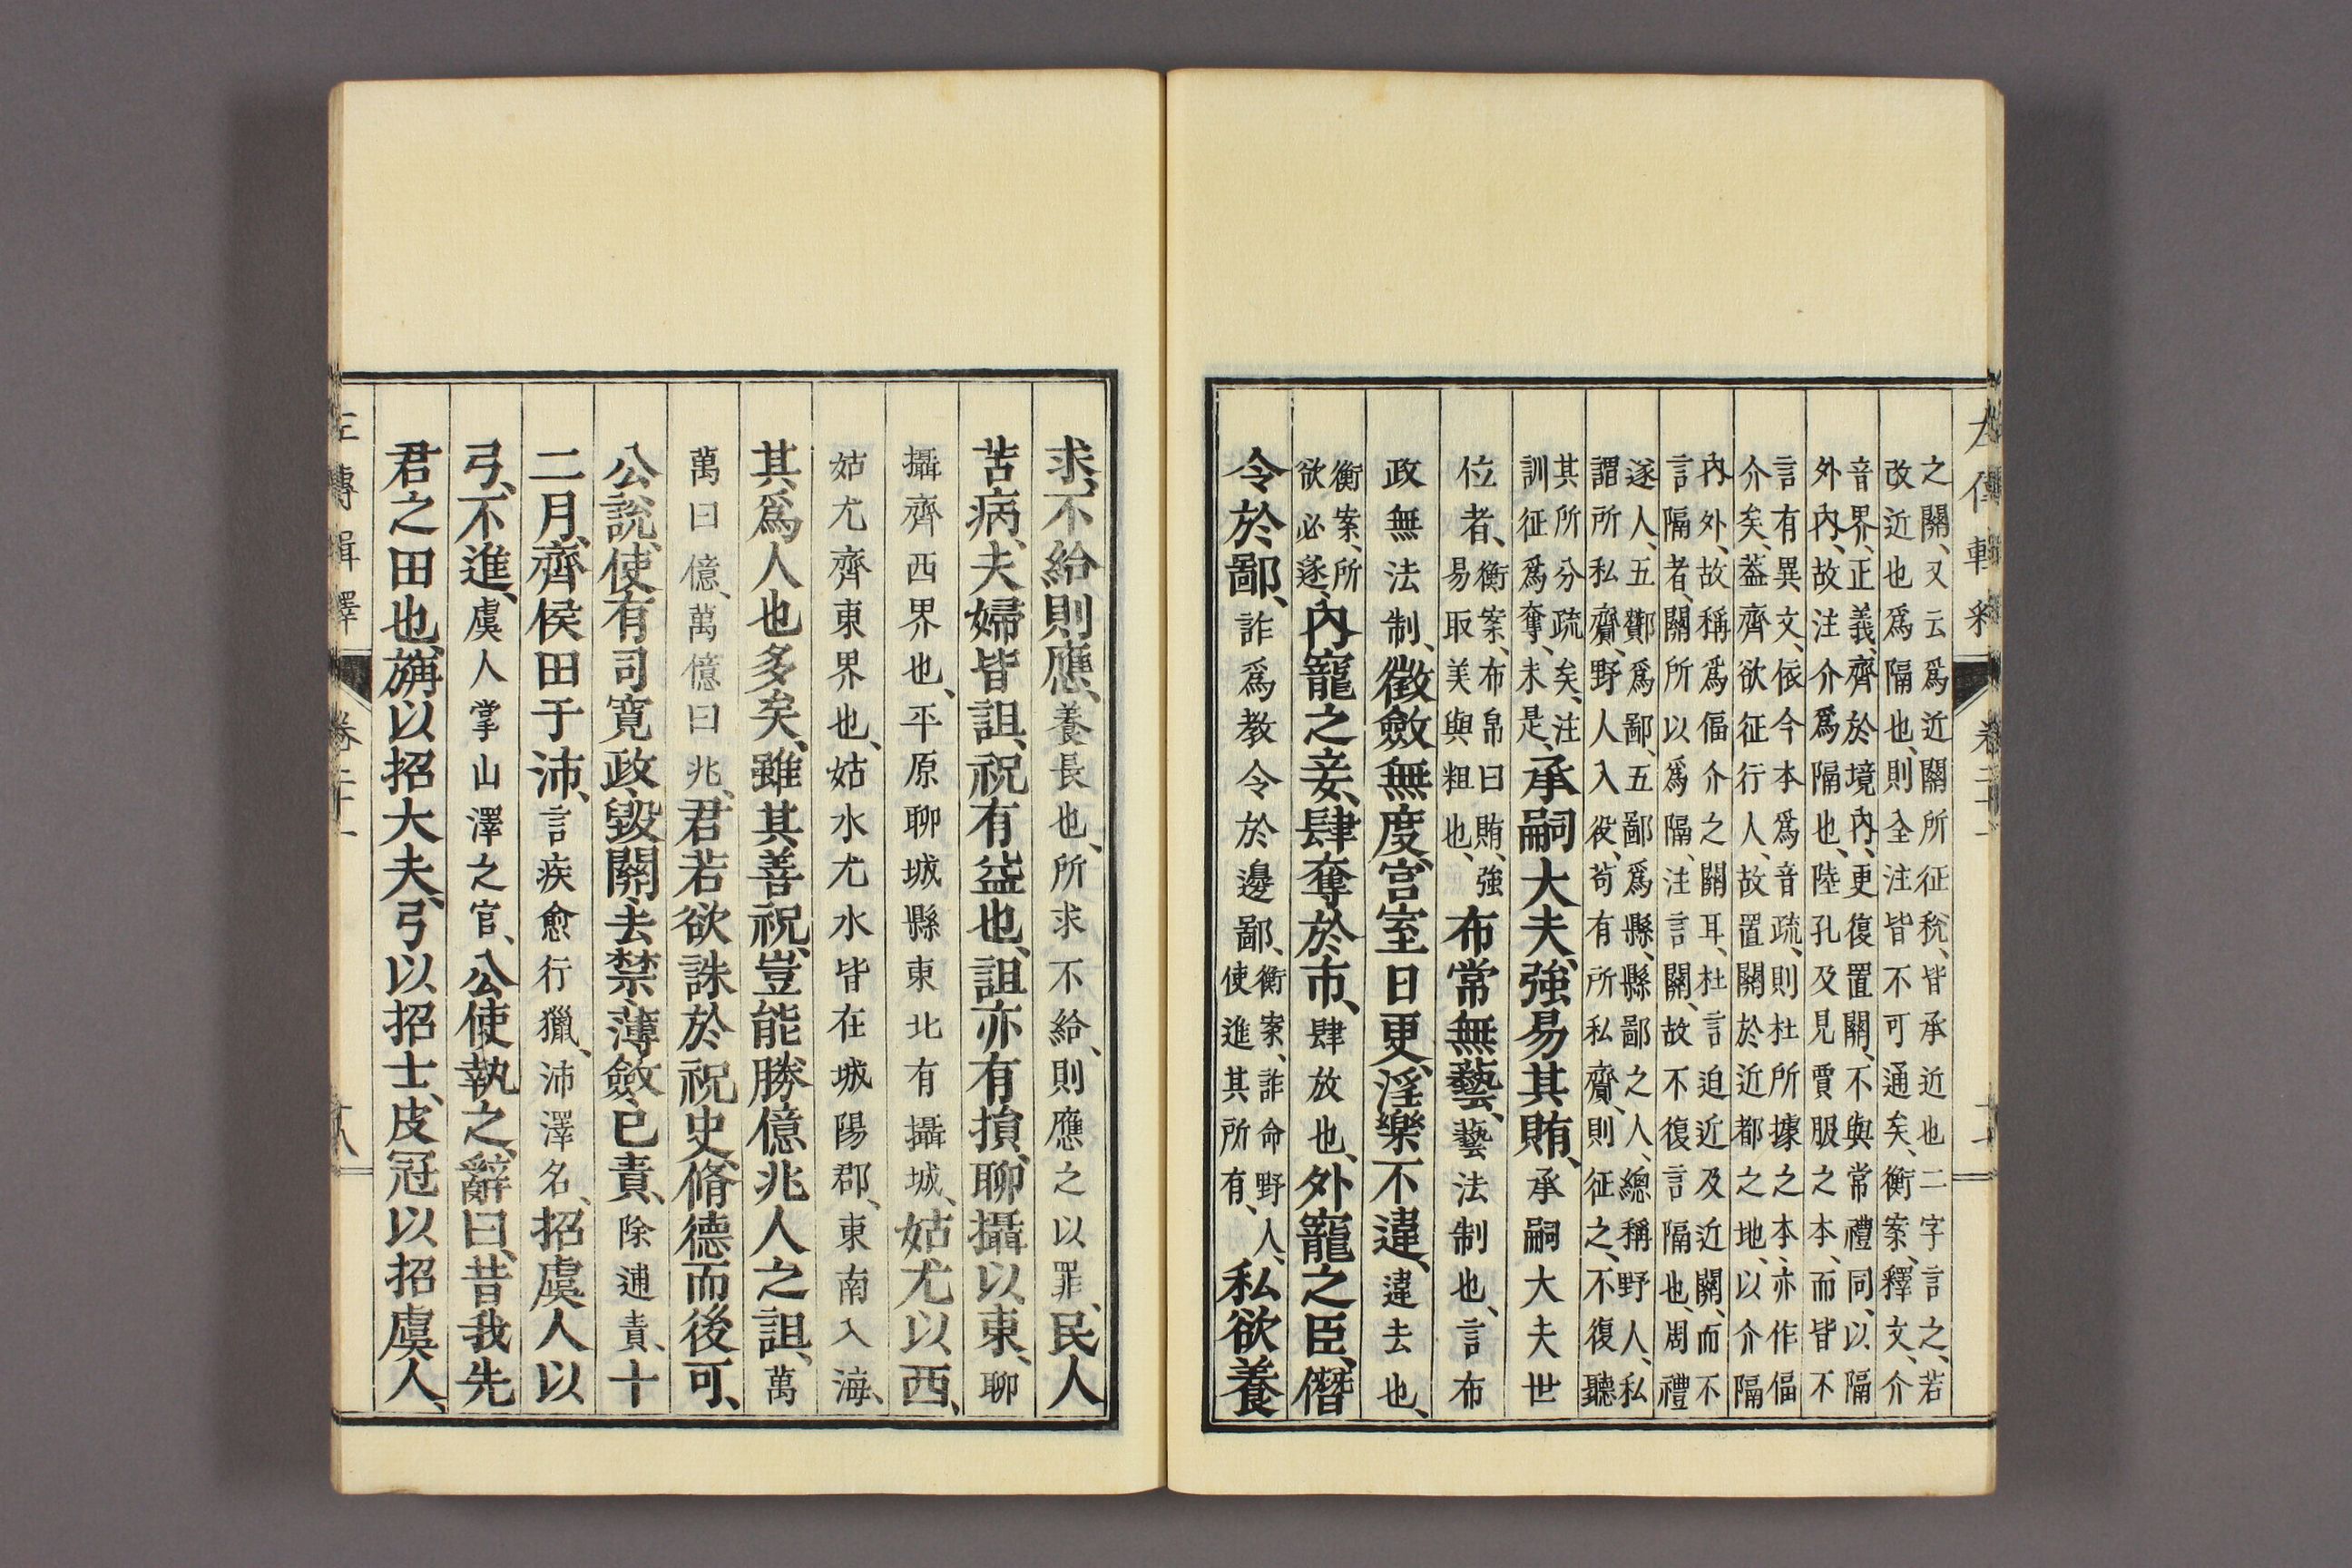 之關、又云爲近關所征稅、皆承近也二字言之、若
改近也爲隔也、則全注皆不可通矣、衡案、釋文、介
音界、正義、齊於境內、更復置關、不與常禮同、以隔
外內、故注介爲隔也、陸孔及見賈服之本、而皆不
言有異文、依今本爲音疏、則杜所據之本、亦作偪
介矣、蓋齊欲征行人、故置關於近都之地、以介隔
內外、故稱爲偪介之關耳、杜言迫近及近關、而不
言隔者、關所以爲隔、注言關、故不復言隔也、周禮
遂人、五酇爲鄙、五鄙爲縣、縣鄙之人、總稱野人、私
謂所私齎、野人入役、苟有所私齎、則征之、不復聽
其所分疏矣、注訓征爲奪、未是、承嗣大夫、強易其賄、承嗣大夫世
位者、衡案、布帛曰賄、強易取美與粗也、布常無藝、藝法制也、言布
政無法制、徵斂無度、宮室日更、淫樂不違、違去也、
衡案、所欲必遂、內寵之妾、肆奪於市、肆放也、外寵之臣、僭
令於鄙、詐爲教令於邊鄙、衡案、詐命野人、使進其所有、私欲養
求、不給則應、養長也、所求不給、則應之以罪、民人
苦病、夫婦皆詛、祝有益也、詛亦有損、聊攝以東、聊
攝齊西界也、平原聊城縣東北有攝城、姑尤以西、
姑尤齊東界也、姑水尤水皆在城陽郡、東南入海、
其爲人也多矣、雖其善祝、豈能勝億兆人之詛、萬
萬曰億、萬億曰兆、君若欲誅於祝史、脩德而後可、
公說、使有司寬政、毀關、去禁、薄斂、已責、除逋責、十
二月、齊侯田于沛、言疾愈行獵、沛澤名、招虞人以
弓、不進、虞人掌山澤之官、公使執之、辭曰、昔我先
君之田也、旃以招大夫、弓以招士、皮冠以招虞人、
左傳輯釋 卷二十一 十八